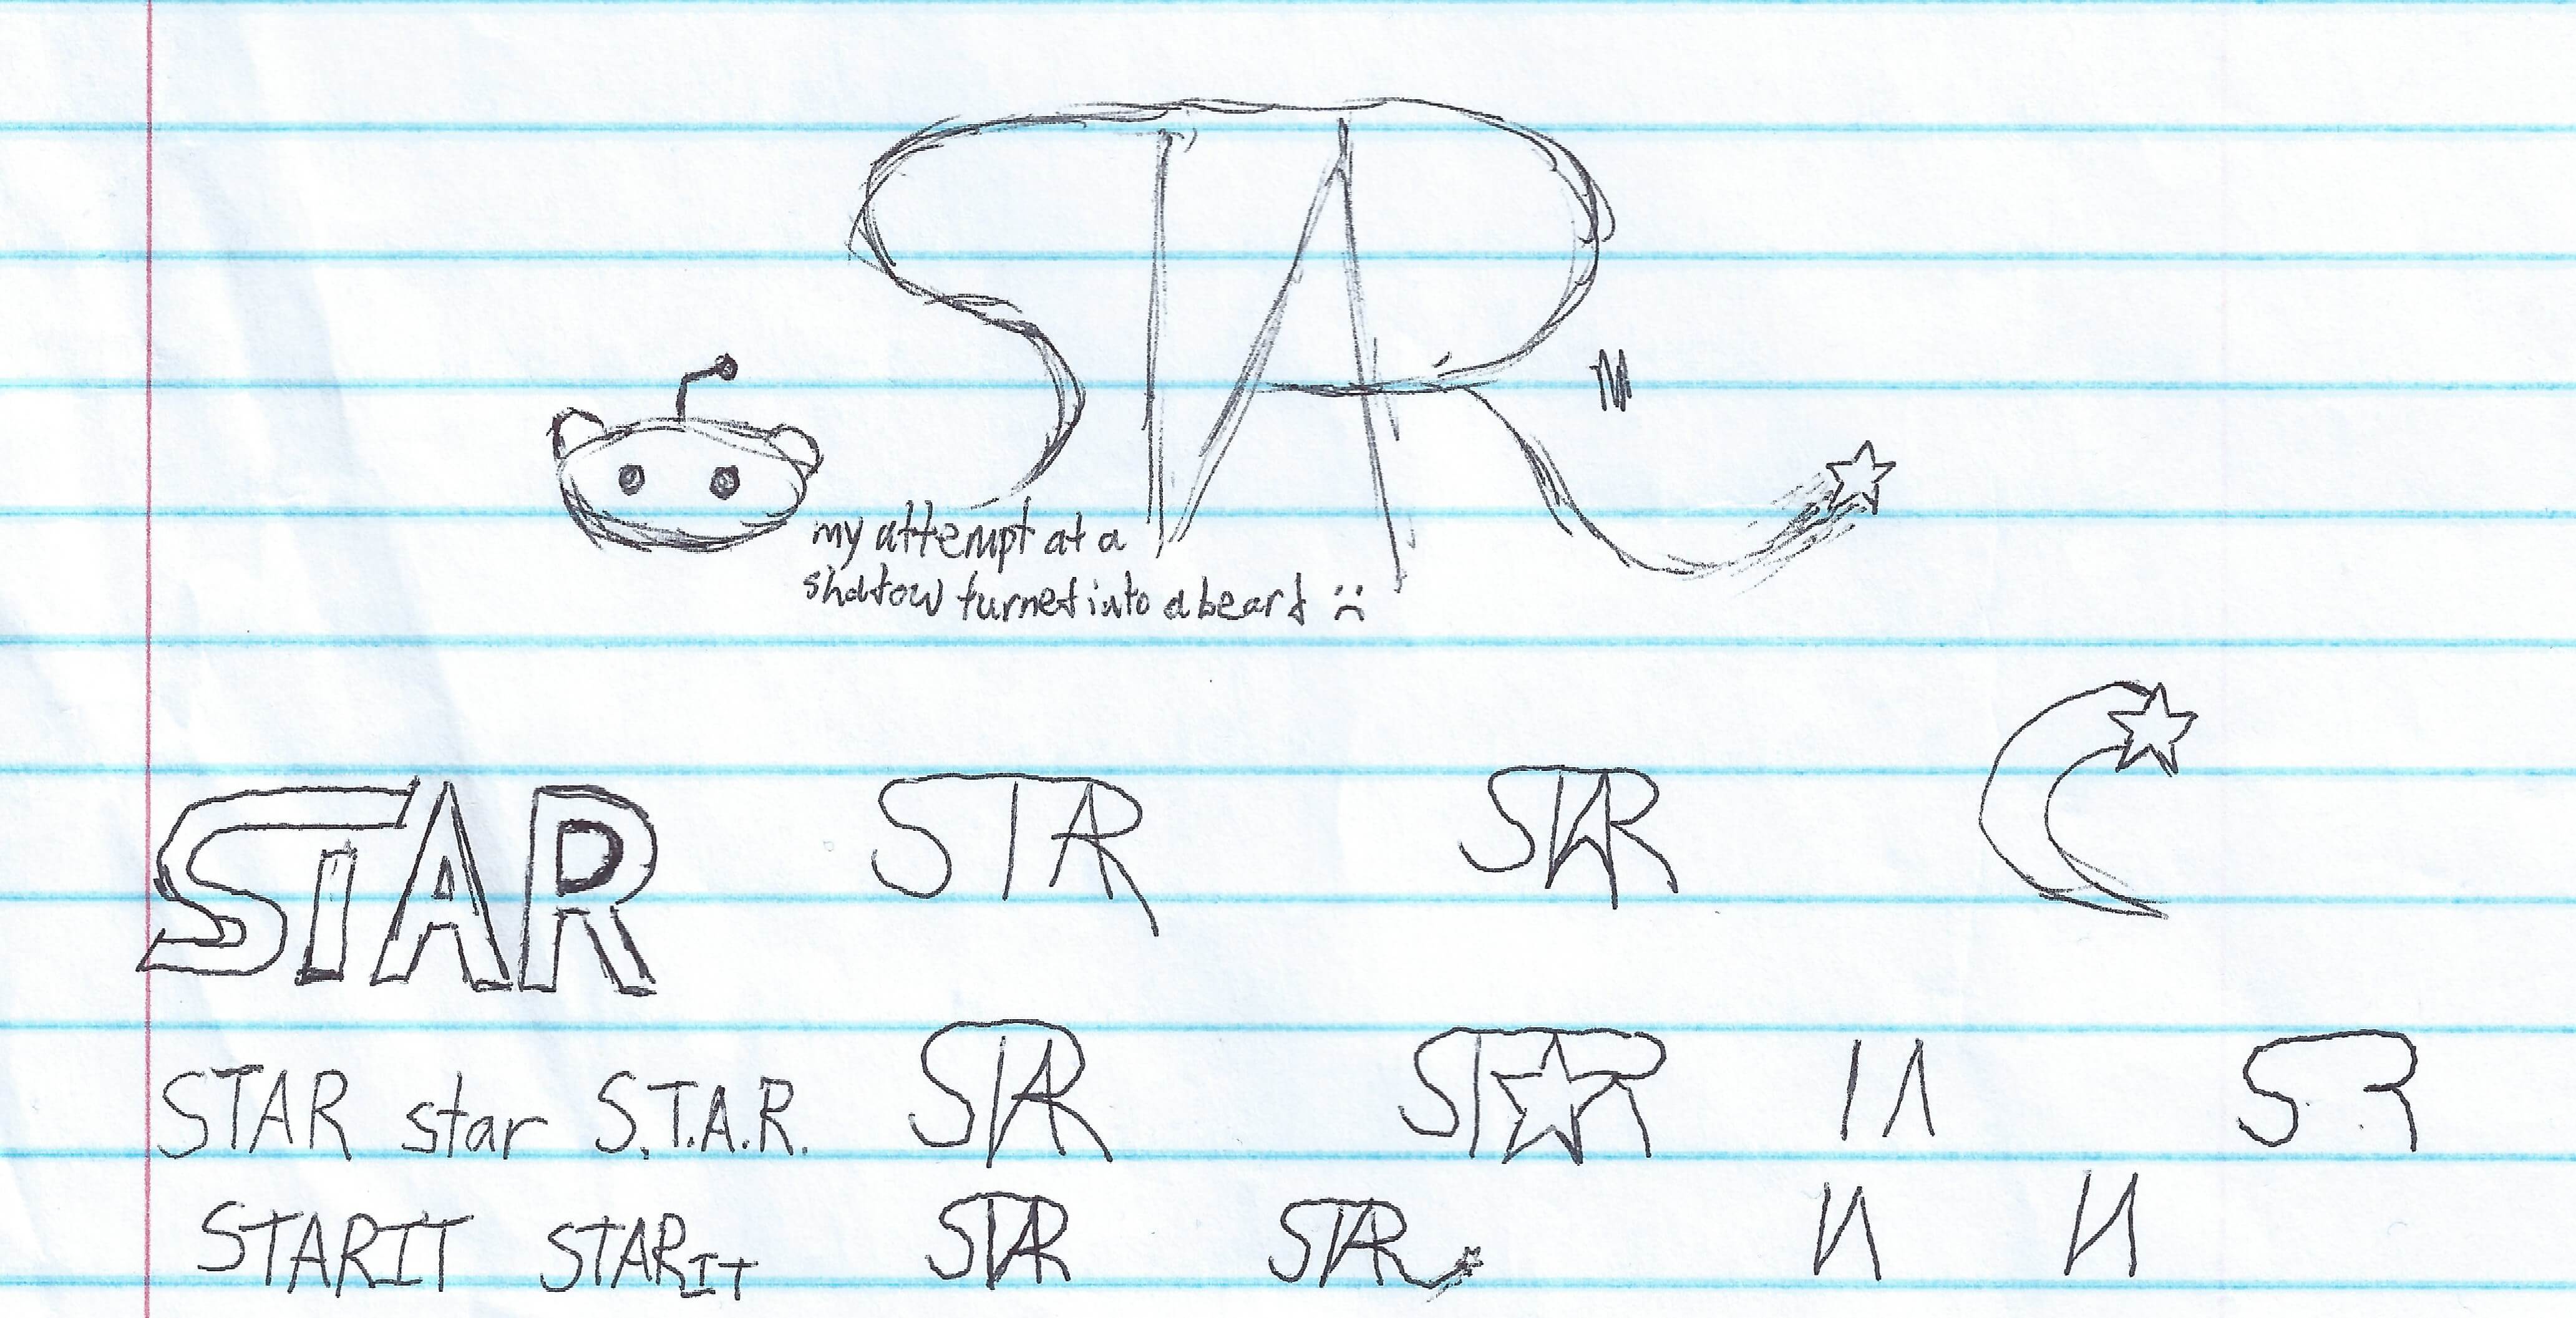 STAR
my attempt at a
shadow turned into a beard :(
STAR STAR STAR
STAR star S.T.A.R. STAR STAR
STARIT STARIT STAR STAR